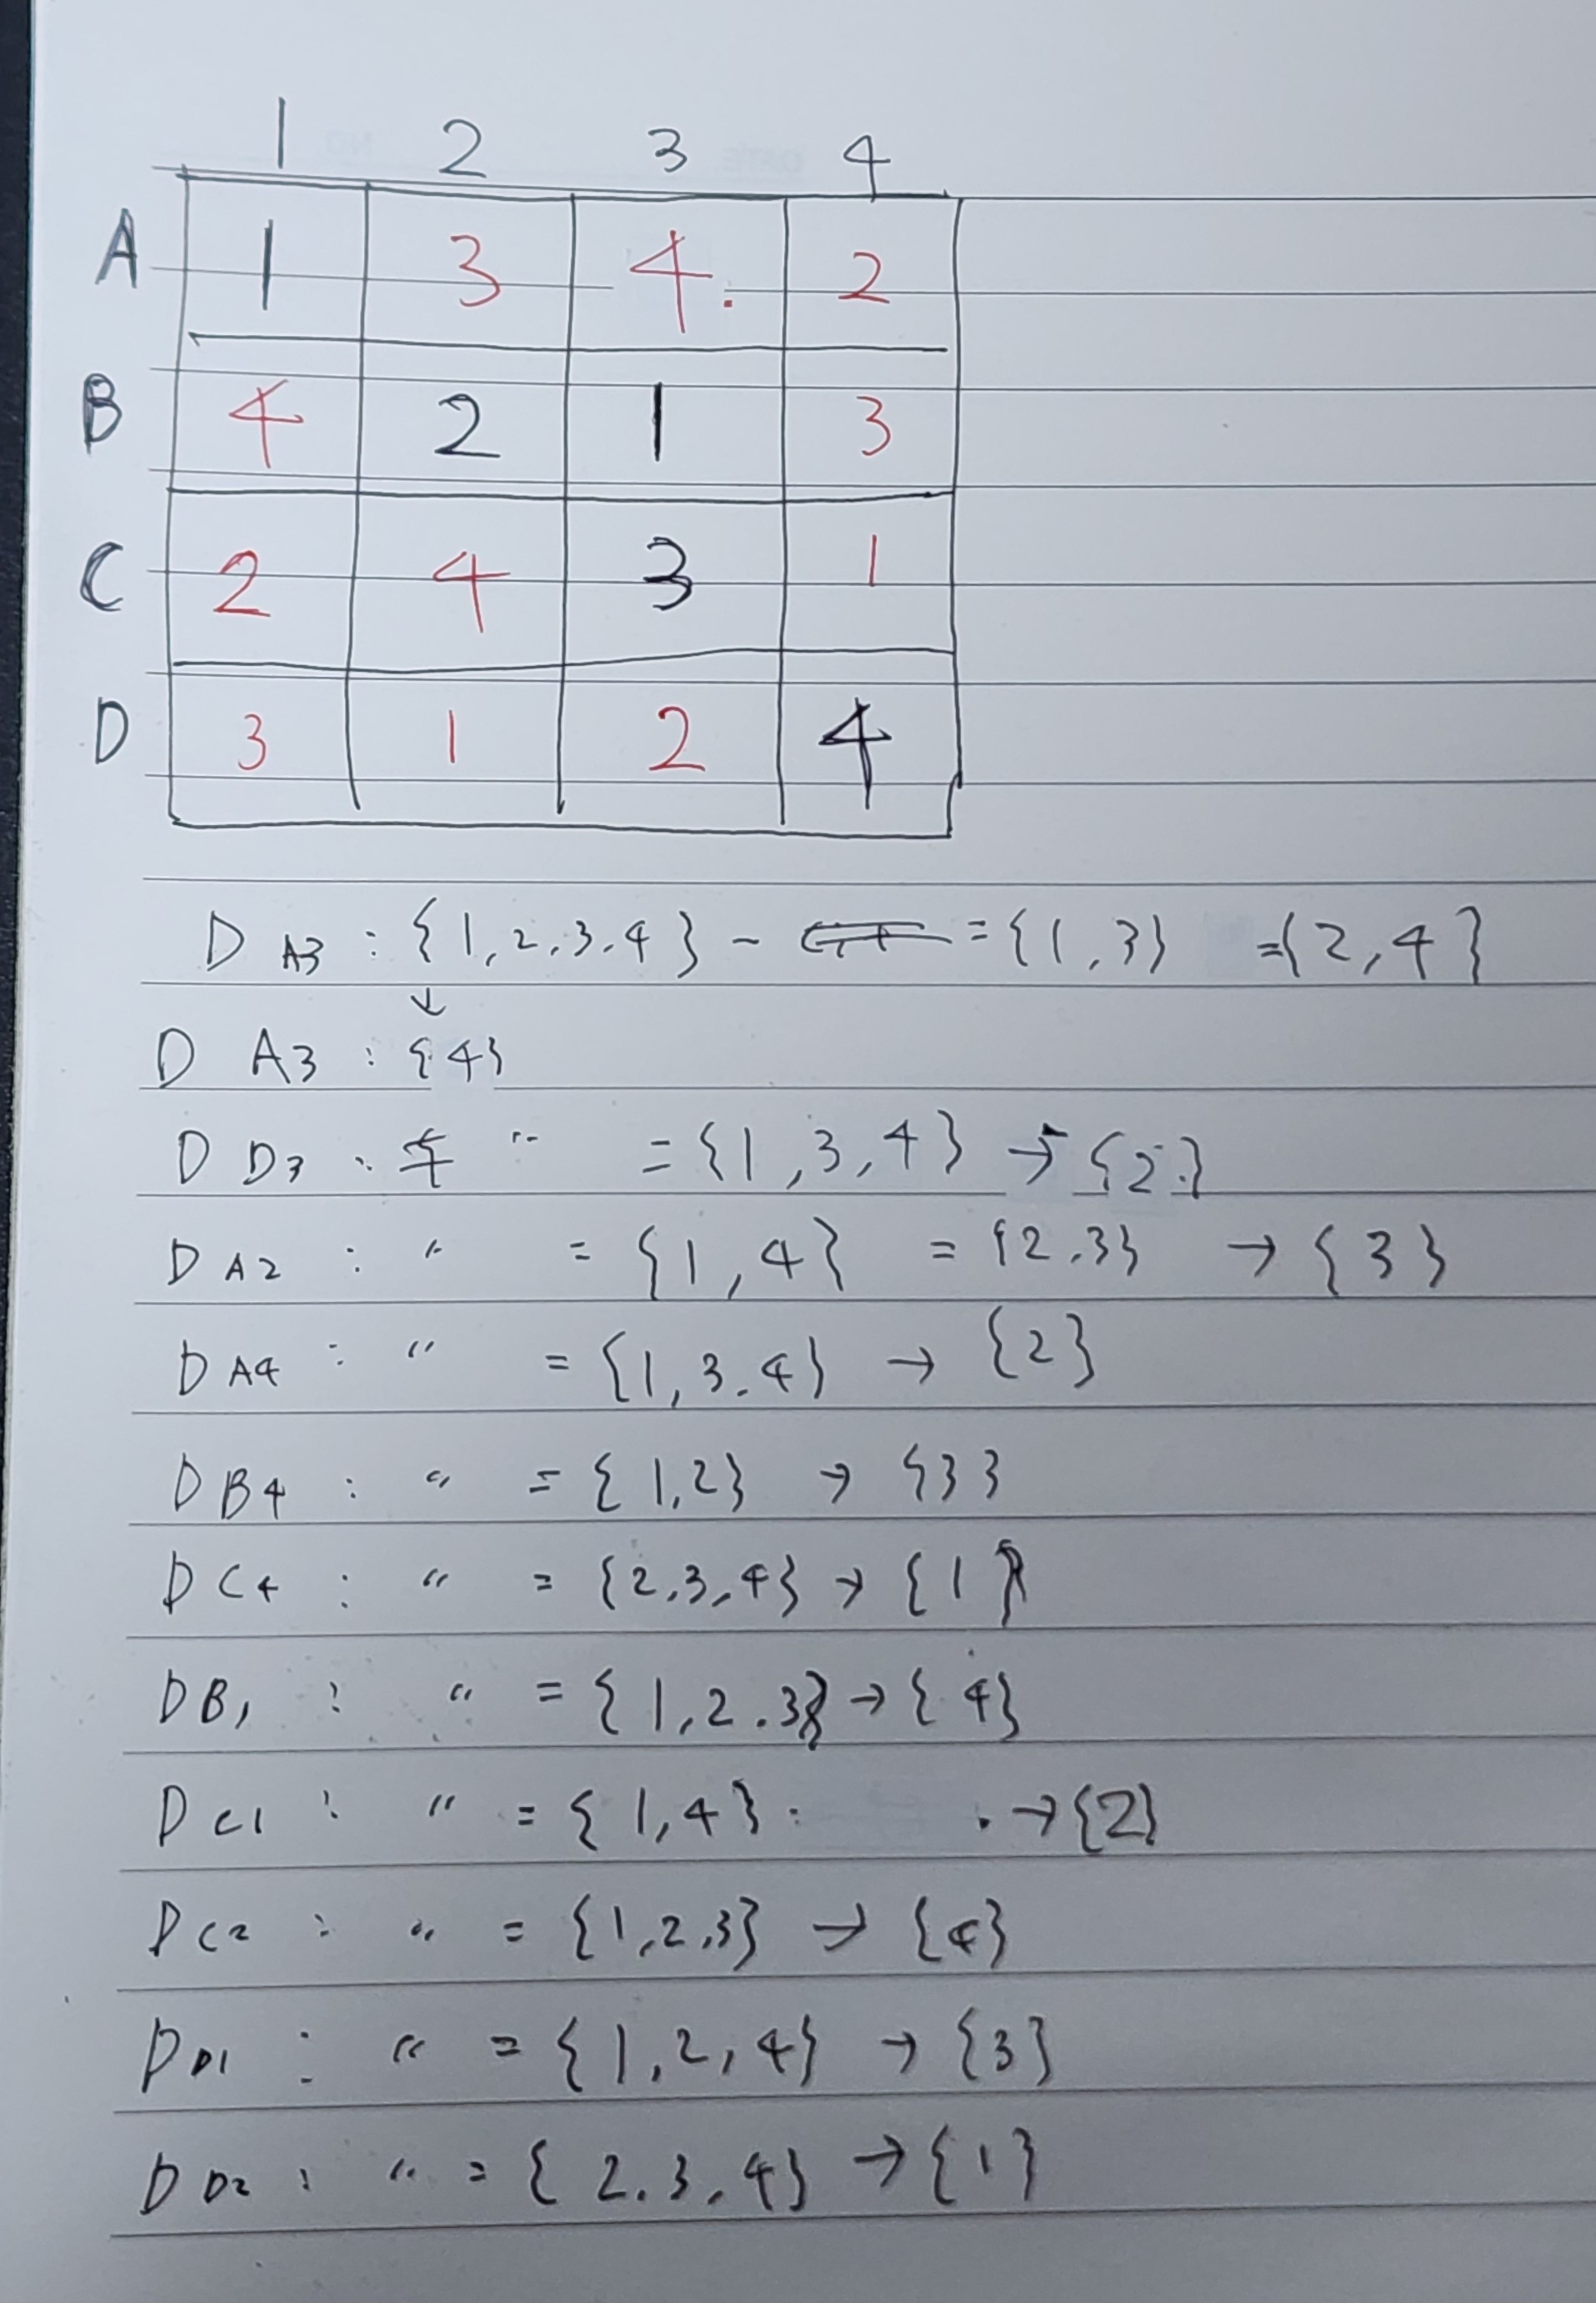 1 2 3 4
A 1 3 4. 2
B 4 2 1 3
C 2 4 3 1
D 3 1 2 4
D A3 : {1,2.3.4} - = {1,3} ={2,4}
↓
D A3 : {4}
D D3 : " = {1,3,4} → {2}
D A2 : " = {1,4} = {2.3} → {3}
D A4 : " = {1,3.4} → {2}
D B4 : " = {1,2} → {3}
D C4 : " = {2.3,4} → {1}
D B1 : " = {1,2.3} → {4}
D C1 : " = {1,4} → {2}
D C2 : " = {1,2,3} → {4}
D D1 : " = {1,2,4} → {3}
D D2 : " = {2.3,4} → {1}